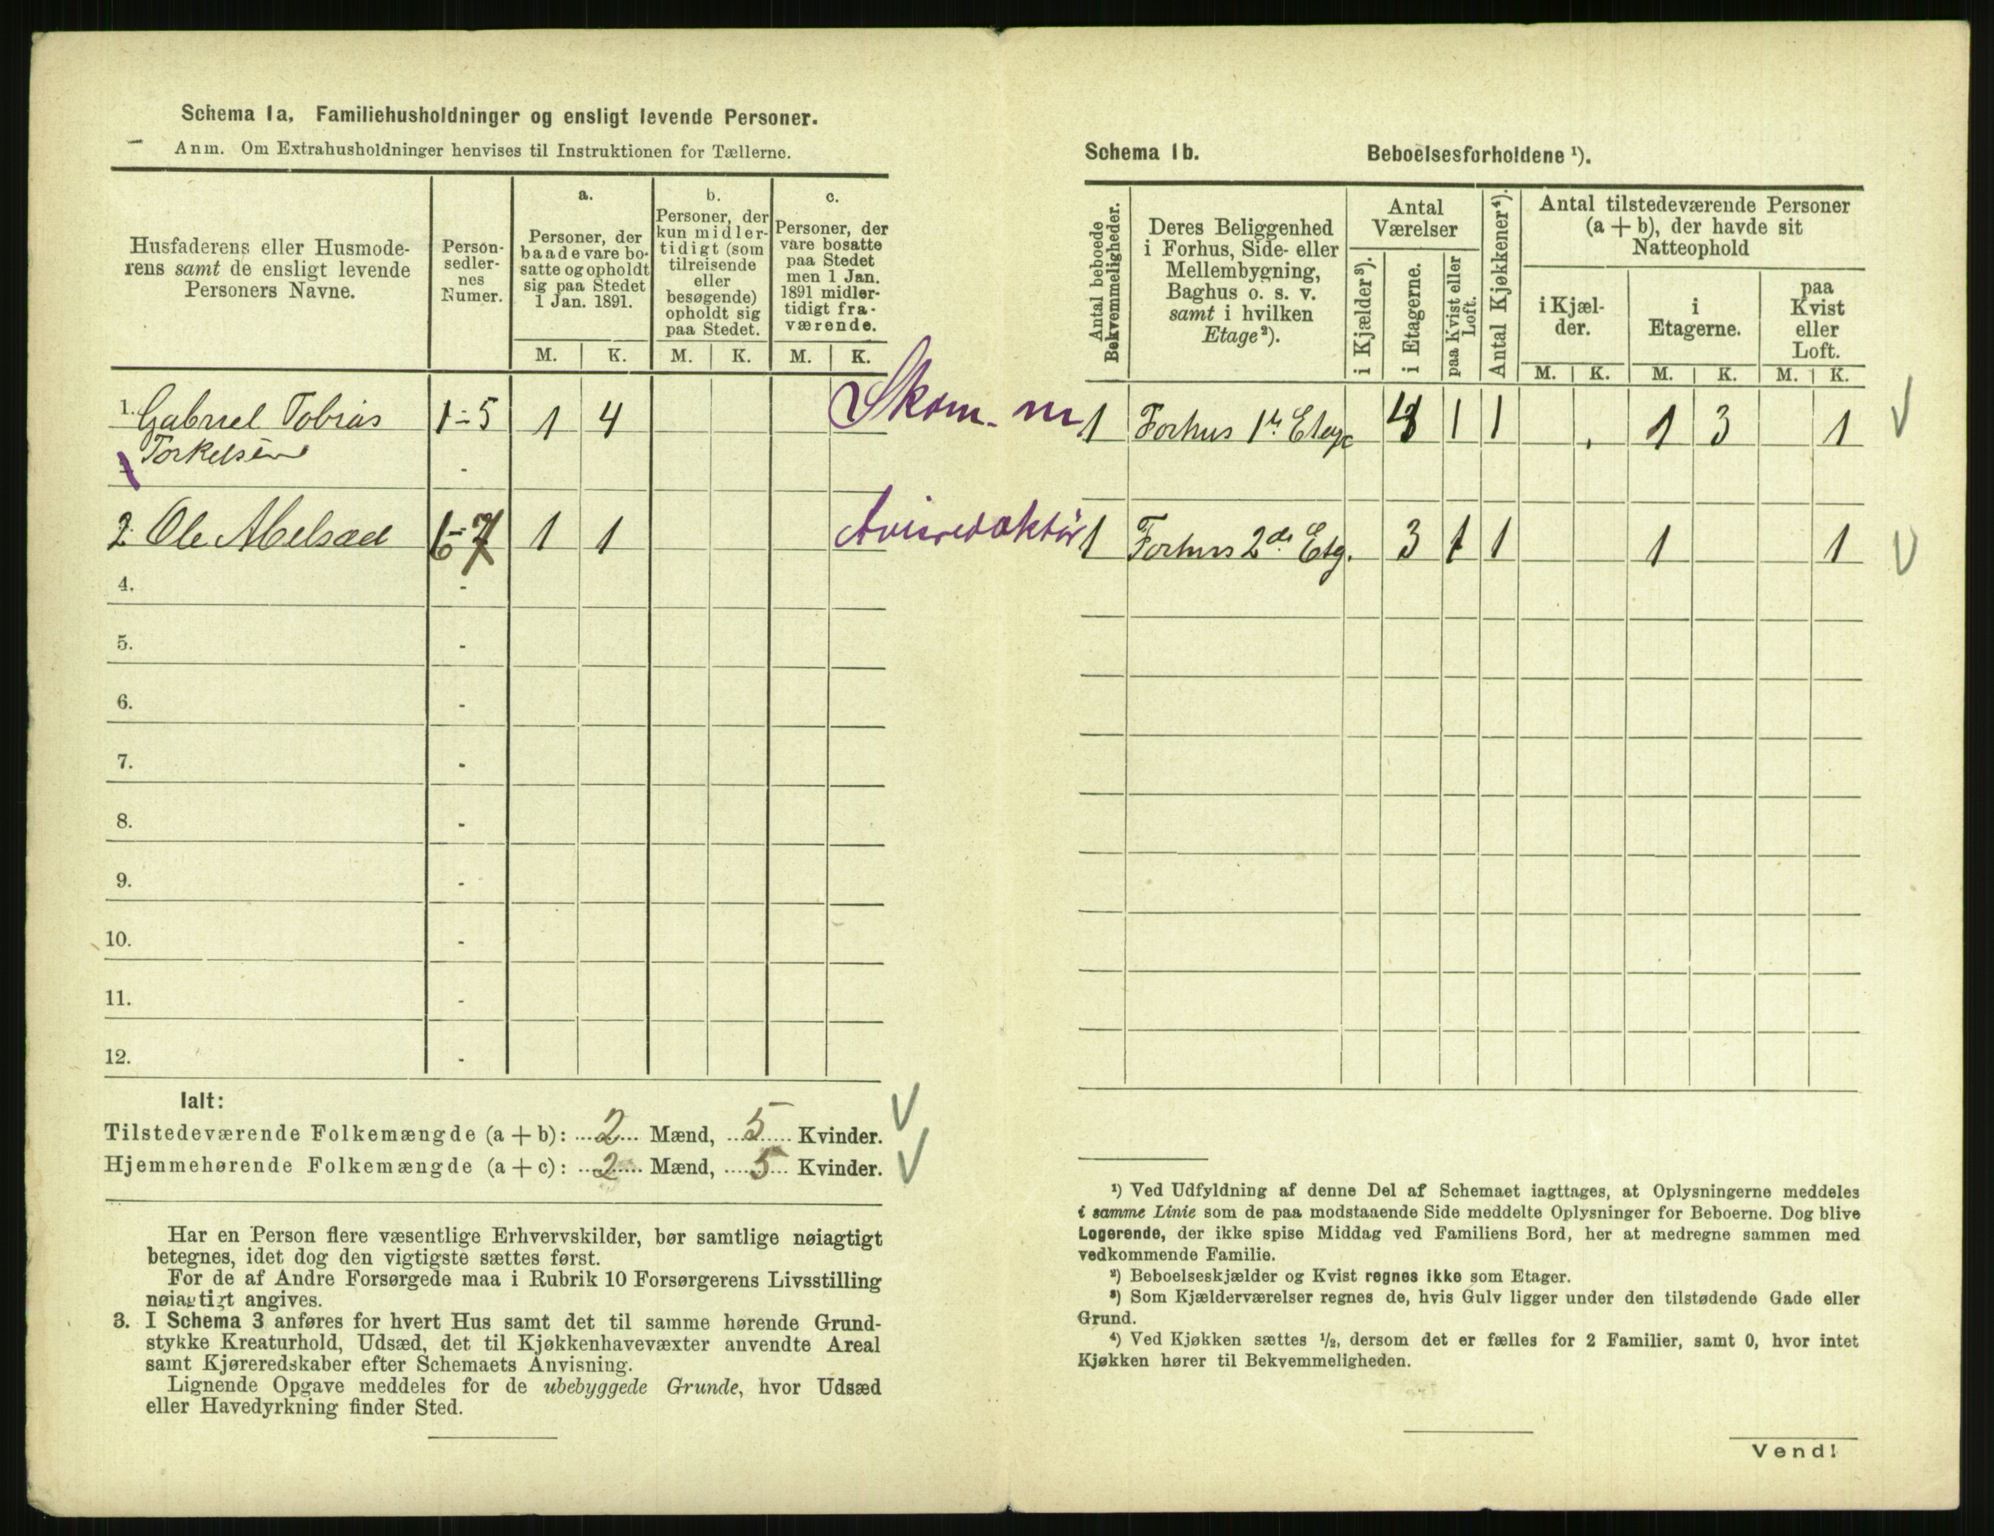 Schema 1a. Familiehusholdninger og ensligt levende Personer.
Anm. Om Extrahusholdninger henvises til Instruktionen for Tællerne.
Husfaderens eller Husmode-
rens samt de ensligt levende
Personers Navne.
Person-
sedler-
nes
Numer.
a.
Personer, der
baade vare bo-
satte og opholdt
sig paa Stedet
1 Jan. 1891.
b.
Personer, der
kun midler-
tidigt (som
tilreisende
eller
besøgende)
opholdt sig
paa Stedet.
c.
Personer, der
vare bosatte
paa Stedet
men 1 Jan.
1891 midler-
tidigt fra-
værende.
M. K. M. K. M. K.
1. Gabriel Tobias 1-5 1 4 Skom. m
Torkelsen -
2. Ole Abelsæd 6-7 1 1 Avisredaktør
4. -
5. -
6. -
7. -
8. -
9. -
10. -
11. -
12. -
Ialt:
Tilstedeværende Folkemængde (a + b): 2 Mænd, 5 Kvinder.
Hjemmehørende Folkemængde (a + c): 2 Mænd, 5 Kvinder.
Har en Person flere væsentlige Erhvervskilder, bør samtlige nøiagtigt
betegnes, idet dog den vigtigste sættes først.
For de af Andre Forsørgede maa i Rubrik 10 Forsørgerens Livsstilling
nøiagtigt angives.
3. I Schema 3 anføres for hvert Hus samt det til samme hørende Grund-
stykke Kreaturhold, Udsæd, det til Kjøkkenhavevæxter anvendte Areal
samt Kjøreredskaber efter Schemaets Anvisning.
Lignende Opgave meddeles for de ubebyggede Grunde, hvor Udsæd
eller Havedyrkning finder Sted.
Schema 1b. Beboelsesforholdene ¹).
Antal beboede
Bekvemmeligheder.
Deres Beliggenhed
i Forhus, Side- eller
Mellembygning,
Baghus o. s. v.
samt i hvilken
Etage²).
Antal
Værelser
i Kjælder³).
i Etagerne.
paa Kvist eller
Loft.
Antal Kjøkkener⁴).
Antal tilstedeværende Personer
(a + b), der havde sit
Natteophold
i Kjæl-
der.
i
Etagerne.
paa
Kvist
eller
Loft.
M. K. M. K. M. K.
1 Forhus 1ste Etage 4 1 1 1 3 1
1 Forhus 2den Etg. 3 1 1 1 1
¹) Ved Udfyldning af denne Del af Schemaet iagttages, at Oplysningerne meddeles
i samme Linie som de paa modstaaende Side meddelte Oplysninger for Beboerne. Dog blive
Logerende, der ikke spise Middag ved Familiens Bord, her at medregne sammen med
vedkommende Familie.
²) Beboelseskjælder og Kvist regnes ikke som Etager.
³) Som Kjælderværelser regnes de, hvis Gulv ligger under den tilstødende Gade eller
Grund.
⁴) Ved Kjøkken sættes ½, dersom det er fælles for 2 Familier, samt 0, hvor intet
Kjøkken hører til Bekvemmeligheden.
Vend!